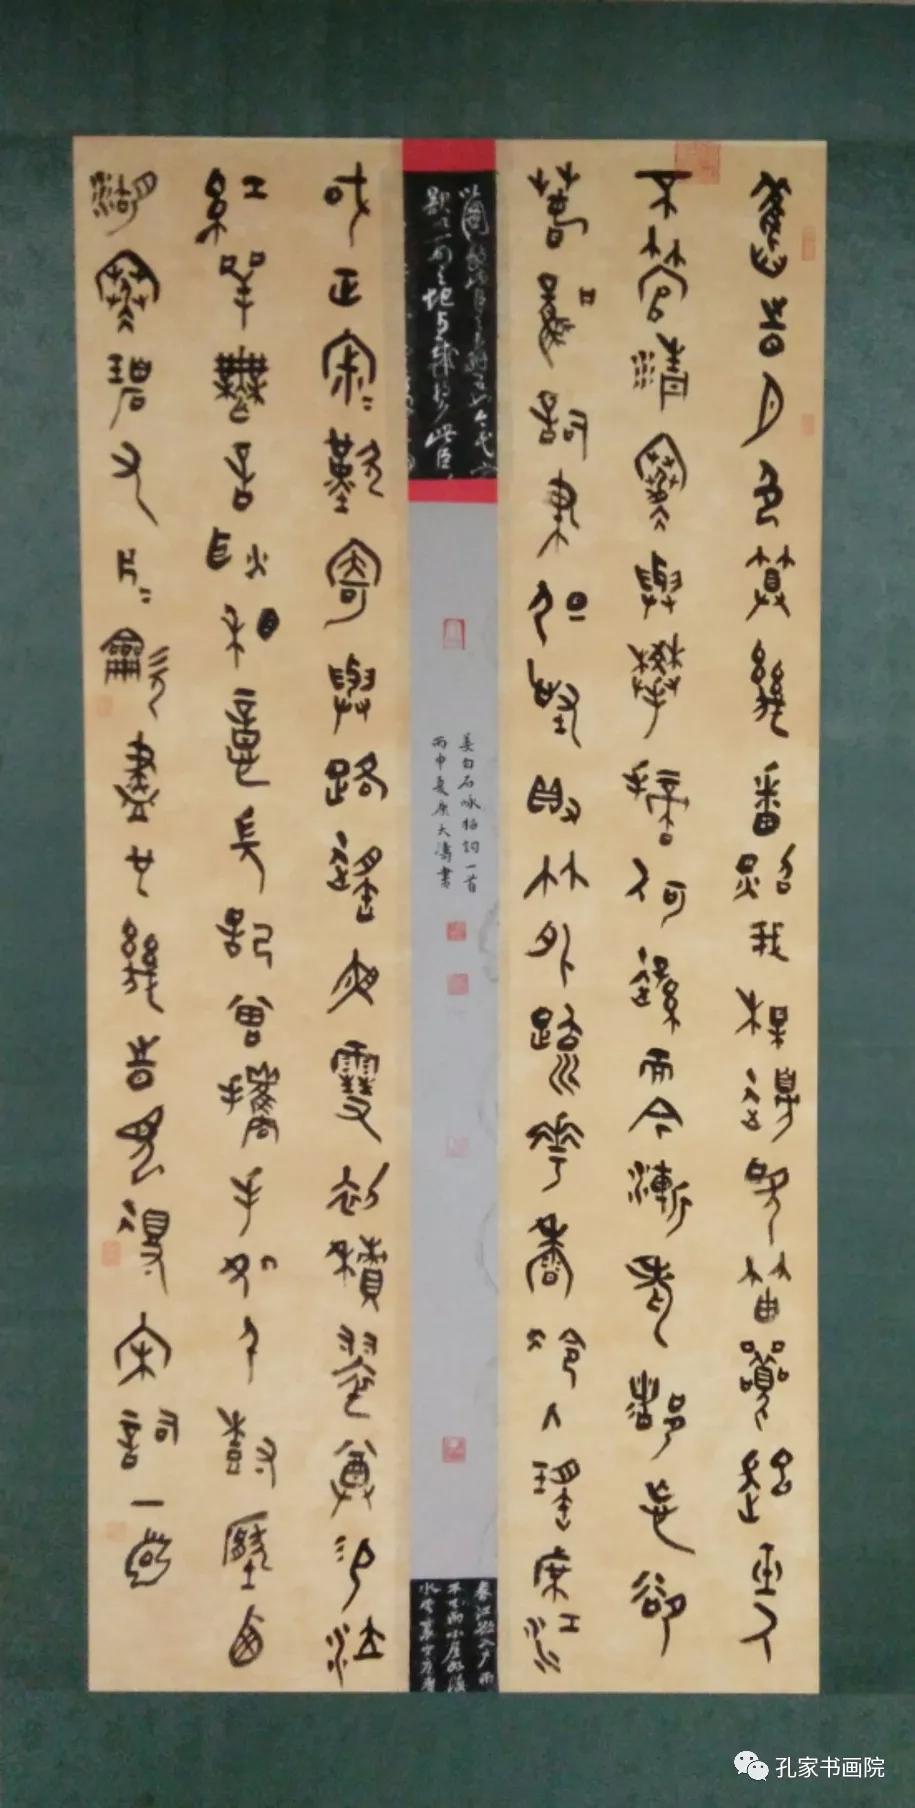 舊時月色算幾番照我梅邊吹笛喚起玉人
不管清寒與攀摘何遜而今漸老都忘卻
春風詞筆但怪得竹外疏花香冷入瑤席江
或正寂〻歎寄與路遙夜雪初積翠尊易泣
紅萼無言耿相憶長記曾攜手處千樹壓西
湖寒碧又片〻吹盡也幾時見得宋詞一首
姜白石咏梅詞一首
丙申夏大濤書
春江欲入戶雨
不已雨小屋如漁
水雲裏空庖煮
孔家书画院